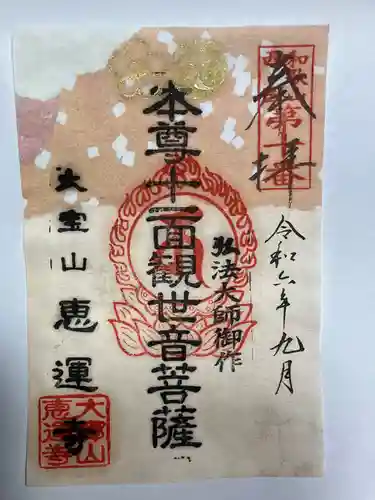 奉拝
西和歌第一番
令和六年九月
弘法大師御作
本尊十一面観世音菩薩
大宝山恵運寺
大宝山恵運寺